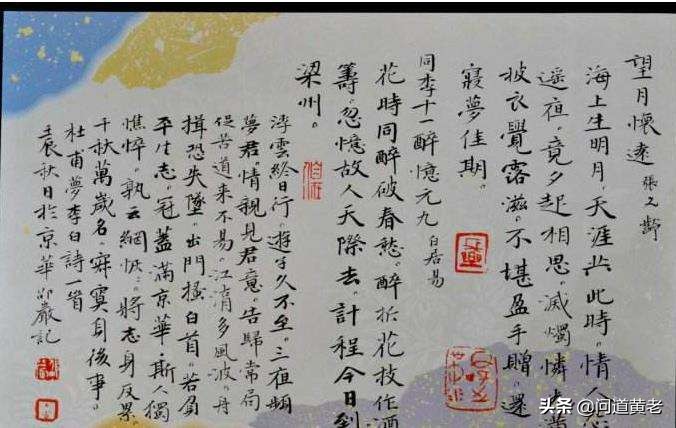 望月懷遠 張九齡
海上生明月。天涯共此時。情人
遥夜。竟夕起相思。滅燭憐
披衣覺露滋。不堪盈手贈。還
寢夢佳期。
同李十一醉憶元九 白居易
花時同醉破春愁。醉折花枝作酒
籌。忽憶故人天際去。計程今日到
梁州。
浮雲終日行。遊子久不至。三夜頻
夢君。情親見君意。告歸常局
促苦道来不易。江湖多風波。舟
楫恐失墜。出門搔白首。若負
平生志。冠蓋滿京華。斯人獨
憔悴。孰云網恢。將老身反累。
千秋萬歲名。寂寞身後事。
杜甫夢李白詩一首
壬辰秋日於京華 巖記
头条 @问道黄老